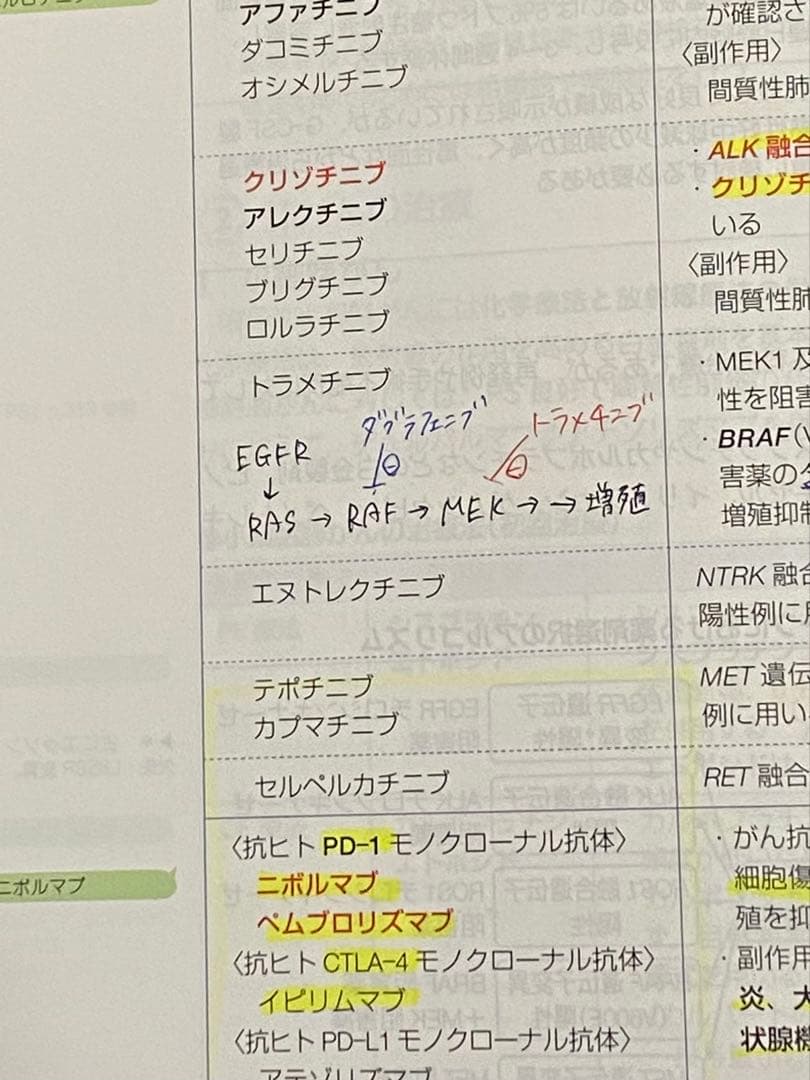 アファチニブ
ダコミチニブ
オシメルチニブ
クリゾチニブ
アレクチニブ
セリチニブ
ブリグチニブ
ロルラチニブ
トラメチニブ
ダブラフェニブ
トラメチニブ
EGFR
↓
⊖
⊖
RAS → RAF → MEK → → 増殖
エヌトレクチニブ
テポチニブ
カプマチニブ
セルペルカチニブ
〈抗ヒト PD-1 モノクローナル抗体〉
ニボルマブ
ペムブロリズマブ
〈抗ヒト CTLA-4 モノクローナル抗体〉
イピリムマブ
〈抗ヒト PD-L1 モノクローナル抗体〉
アテゾリズマブ
が確認さ
〈副作用〉
間質性肺
・ALK 融合
・クリゾチ
いる
〈副作用〉
間質性肺
・MEK1 及
性を阻害
・BRAF(V
害薬の
増殖抑制
NTRK 融合
陽性例に用
MET 遺伝
例に用い
RET 融合
・がん抗
細胞傷
殖を抑
・副作用
炎、大
状腺機
ニボルマブ